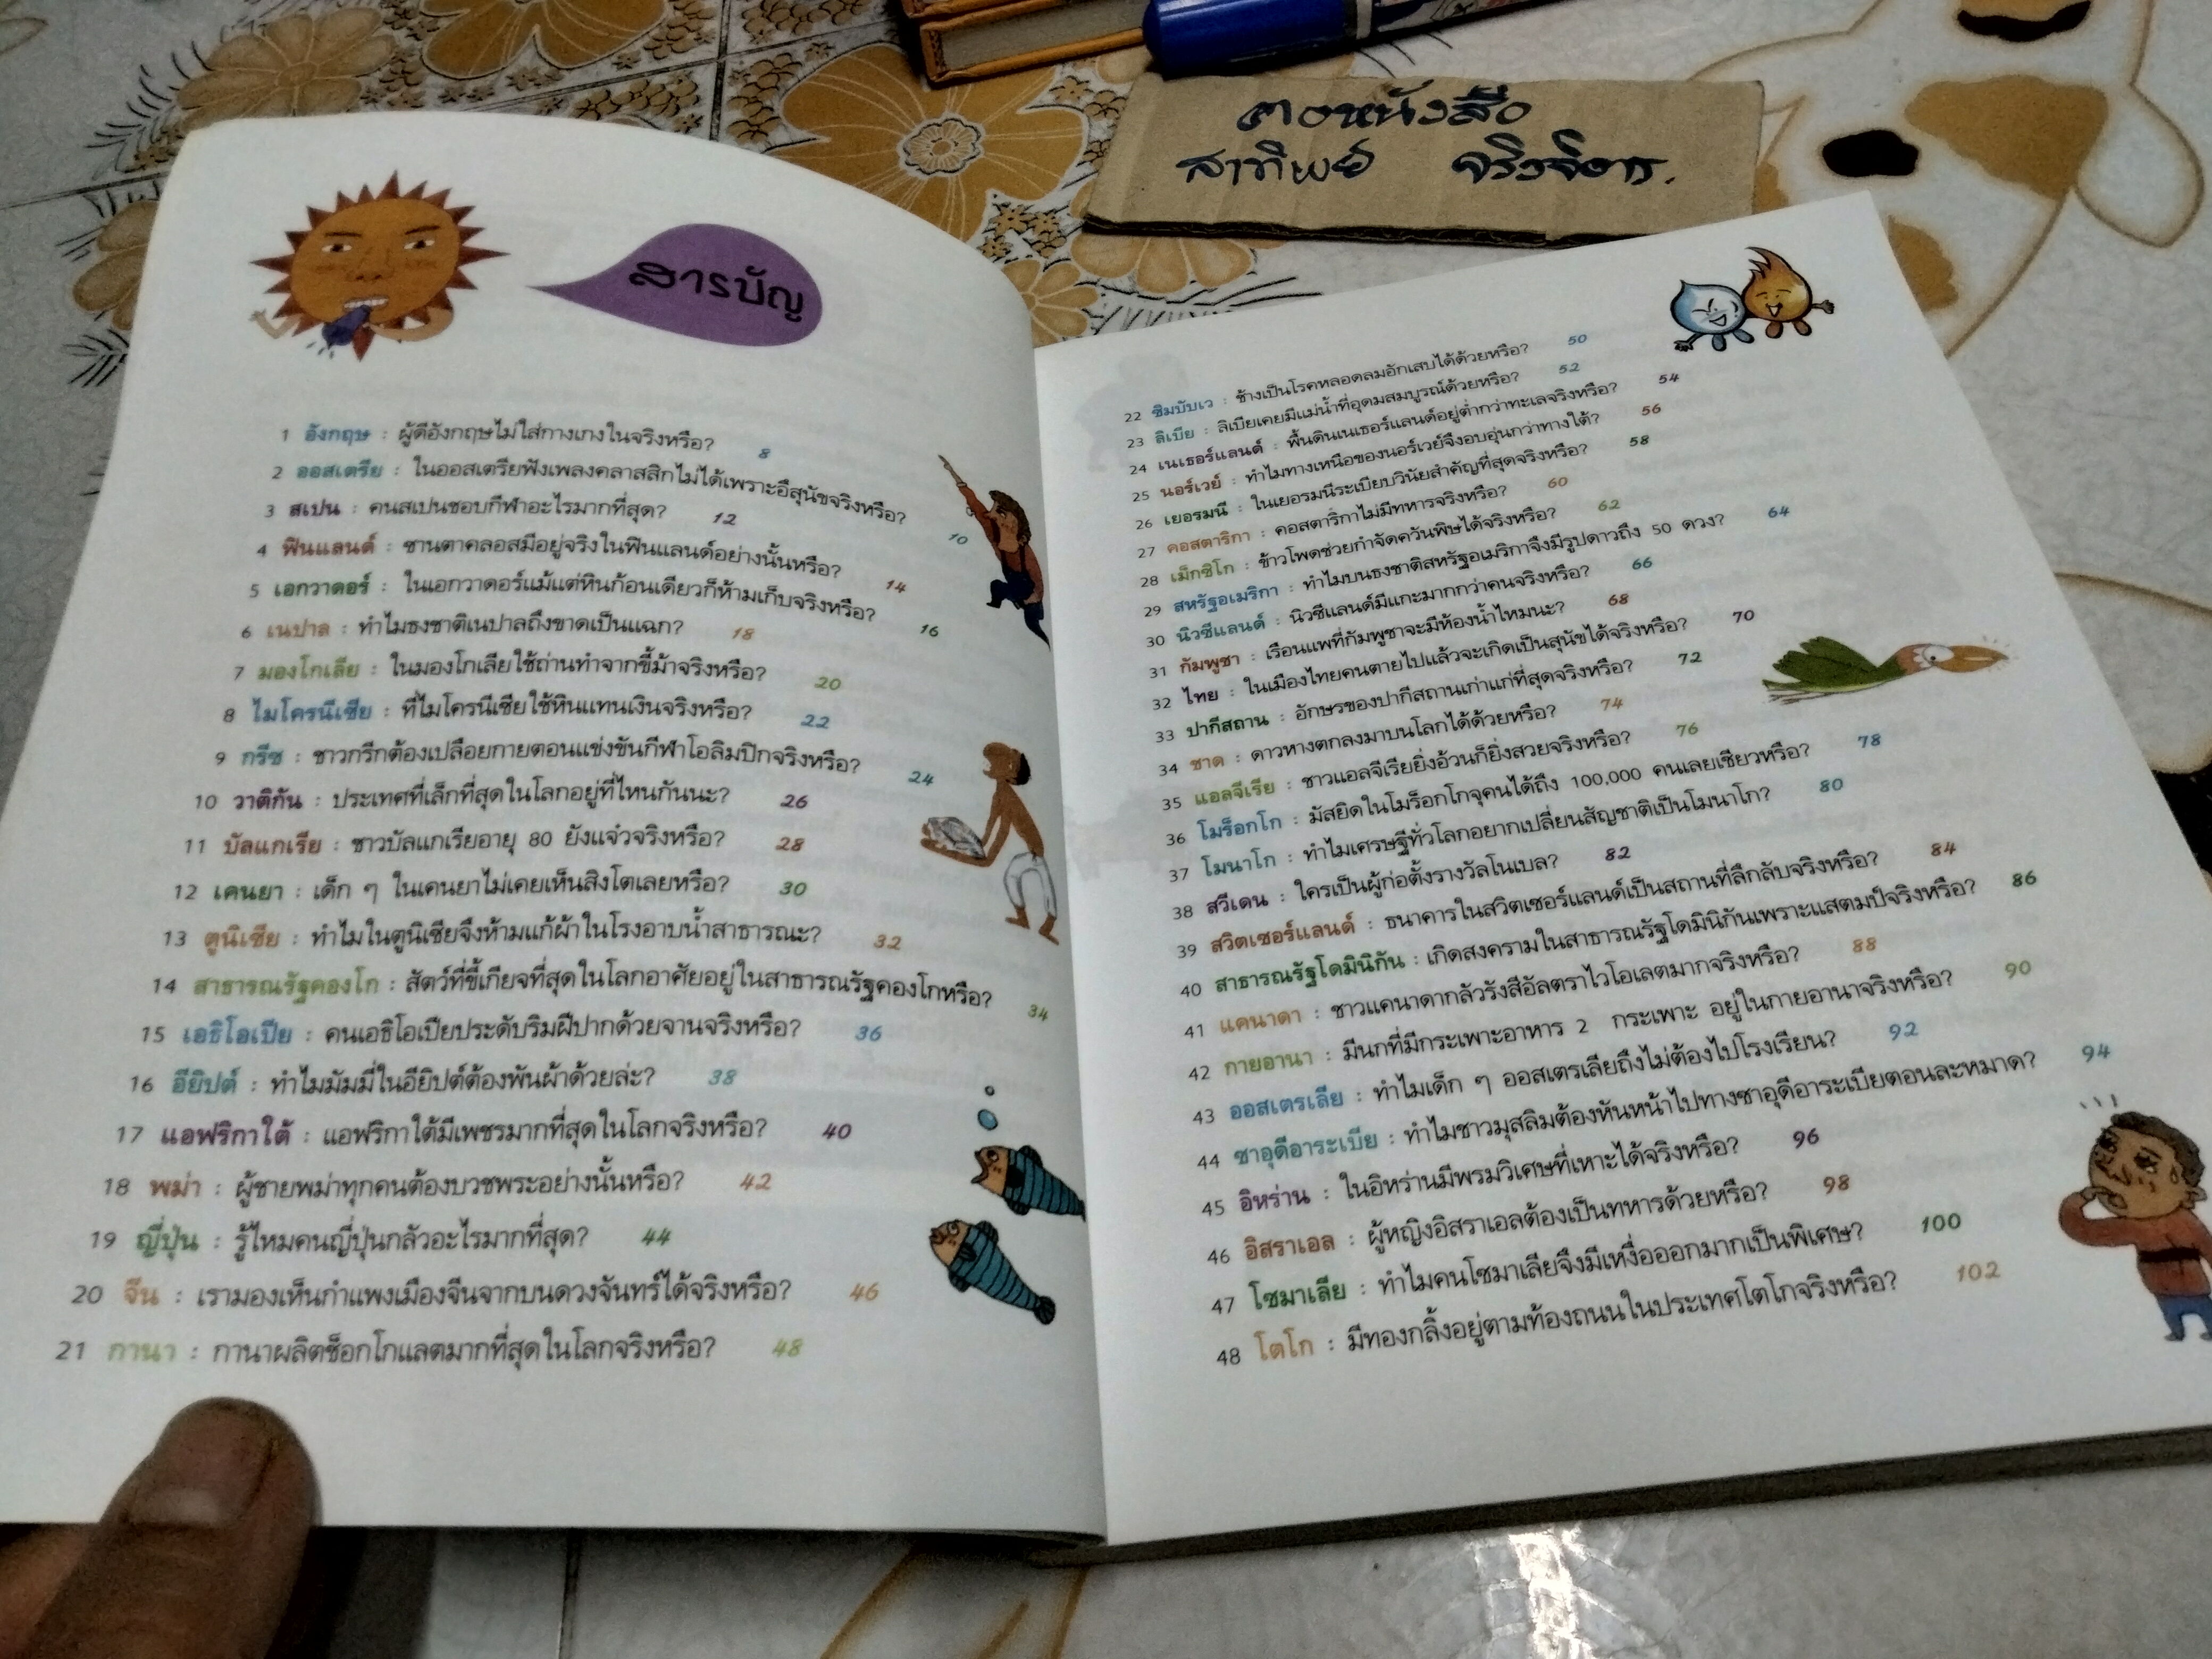 สารบัญ
1 อังกฤษ : ผู้ดีอังกฤษไม่ใส่กางเกงในจริงหรือ? 8
2 ออสเตรีย : ในออสเตรียฟังเพลงคลาสสิกไม่ได้เพราะอึสุนัขจริงหรือ? 10
3 สเปน : คนสเปนชอบกีฬาอะไรมากที่สุด? 12
4 ฟินแลนด์ : ซานตาคลอสมีอยู่จริงในฟินแลนด์อย่างนั้นหรือ? 14
5 เอกวาดอร์ : ในเอกวาดอร์แม้แต่หินก้อนเดียวก็ห้ามเก็บจริงหรือ? 16
6 เนปาล : ทำไมธงชาติเนปาลถึงขาดเป็นแฉก? 18
7 มองโกเลีย : ในมองโกเลียใช้ถ่านทำจากขี้ม้าจริงหรือ? 20
8 ไมโครนีเซีย : ที่ไมโครนีเซียใช้หินแทนเงินจริงหรือ? 22
9 กรีซ : ชาวกรีกต้องเปลือยกายตอนแข่งขันกีฬาโอลิมปิกจริงหรือ? 24
10 วาติกัน : ประเทศที่เล็กที่สุดในโลกอยู่ที่ไหนกันนะ? 26
11 บัลแกเรีย : ชาวบัลแกเรียอายุ 80 ยังแจ๋วจริงหรือ? 28
12 เคนยา : เด็ก ๆ ในเคนยาไม่เคยเห็นสิงโตเลยหรือ? 30
13 ตูนิเซีย : ทำไมในตูนิเซียจึงห้ามแก้ผ้าในโรงอาบน้ำสาธารณะ? 32
14 สาธารณรัฐคองโก : สัตว์ที่ขี้เกียจที่สุดในโลกอาศัยอยู่ในสาธารณรัฐคองโกหรือ? 34
15 เอธิโอเปีย : คนเอธิโอเปียประดับริมฝีปากด้วยจานจริงหรือ? 36
16 อียิปต์ : ทำไมมัมมี่ในอียิปต์ต้องพันผ้าด้วยล่ะ? 38
17 แอฟริกาใต้ : แอฟริกาใต้มีเพชรมากที่สุดในโลกจริงหรือ? 40
18 พม่า : ผู้ชายพม่าทุกคนต้องบวชพระอย่างนั้นหรือ? 42
19 ญี่ปุ่น : รู้ไหมคนญี่ปุ่นกลัวอะไรมากที่สุด? 44
20 จีน : เรามองเห็นกำแพงเมืองจีนจากบนดวงจันทร์ได้จริงหรือ? 46
21 กานา : กานาผลิตช็อกโกแลตมากที่สุดในโลกจริงหรือ? 48
22 ซิมบับเว : ช้างเป็นโรคหลอดลมอักเสบได้ด้วยหรือ? 50
23 ลิเบีย : ลิเบียเคยมีแม่น้ำที่อุดมสมบูรณ์ด้วยหรือ? 52
24 เนเธอร์แลนด์ : พื้นดินเนเธอร์แลนด์อยู่ต่ำกว่าทะเลจริงหรือ? 54
25 นอร์เวย์ : ทำไมทางเหนือของนอร์เวย์จึงอบอุ่นกว่าทางใต้? 56
26 เยอรมนี : ในเยอรมนีระเบียบวินัยสำคัญที่สุดจริงหรือ? 58
27 คอสตาริกา : คอสตาริกาไม่มีทหารจริงหรือ? 60
28 เม็กซิโก : ข้าวโพดช่วยกำจัดควันพิษได้จริงหรือ? 62
29 สหรัฐอเมริกา : ทำไมบนธงชาติสหรัฐอเมริกาจึงมีรูปดาวถึง 50 ดวง? 64
30 นิวซีแลนด์ : นิวซีแลนด์มีแกะมากกว่าคนจริงหรือ? 66
31 กัมพูชา : เรือนแพที่กัมพูชาจะมีห้องน้ำไหมนะ? 68
32 ไทย : ในเมืองไทยคนตายไปแล้วจะเกิดเป็นสุนัขได้จริงหรือ? 70
33 ปากีสถาน : อักษรของปากีสถานเก่าแก่ที่สุดจริงหรือ? 72
34 ชาด : ดาวหางตกลงมาบนโลกได้ด้วยหรือ? 74
35 แอลจีเรีย : ชาวแอลจีเรียยิ่งอ้วนก็ยิ่งสวยจริงหรือ? 76
36 โมร็อกโก : มัสยิดในโมร็อกโกจุคนได้ถึง 100,000 คนเลยเชียวหรือ? 78
37 โมนาโก : ทำไมเศรษฐีทั่วโลกอยากเปลี่ยนสัญชาติเป็นโมนาโก? 80
38 สวีเดน : ใครเป็นผู้ก่อตั้งรางวัลโนเบล? 82
39 สวิตเซอร์แลนด์ : ธนาคารในสวิตเซอร์แลนด์เป็นสถานที่ลึกลับจริงหรือ? 84
40 สาธารณรัฐโดมินิกัน : เกิดสงครามในสาธารณรัฐโดมินิกันเพราะแสตมป์จริงหรือ? 86
41 แคนาดา : ชาวแคนาดากลัวรังสีอัลตราไวโอเลตมากจริงหรือ? 88
42 กายอานา : มีนกที่มีกระเพาะอาหาร 2 กระเพาะ อยู่ในกายอานาจริงหรือ? 90
43 ออสเตรเลีย : ทำไมเด็ก ๆ ออสเตรเลียถึงไม่ต้องไปโรงเรียน? 92
44 ซาอุดีอาระเบีย : ทำไมชาวมุสลิมต้องหันหน้าไปทางซาอุดีอาระเบียตอนละหมาด? 94
45 อิหร่าน : ในอิหร่านมีพรมวิเศษที่เหาะได้จริงหรือ? 96
46 อิสราเอล : ผู้หญิงอิสราเอลต้องเป็นทหารด้วยหรือ? 98
47 โซมาเลีย : ทำไมคนโซมาเลียจึงมีเหงื่อออกมากเป็นพิเศษ? 100
48 โตโก : มีทองกลิ้งอยู่ตามท้องถนนในประเทศโตโกจริงหรือ? 102